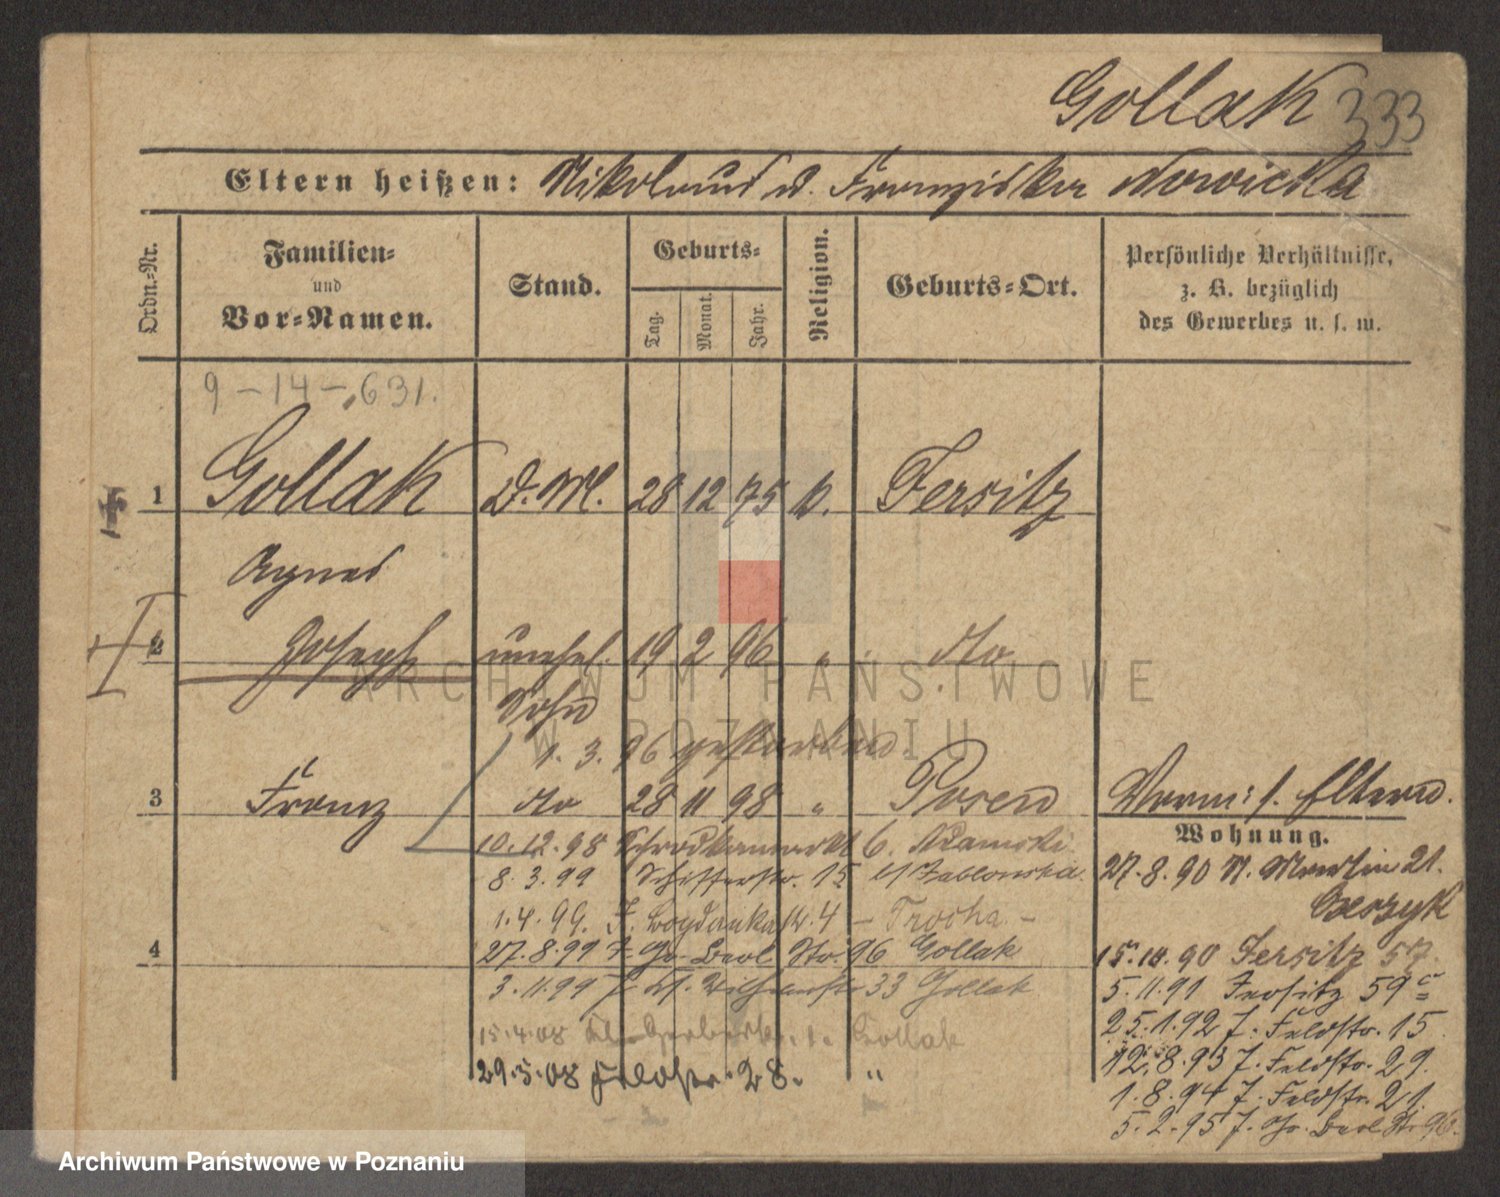 Gollak 333
Eltern heißen: Nikolaus u. Franziska Nowicka
Ordn.-Nr.
Familien-
und
Vor-Namen.
Stand.
Geburts-
Tag.
Monat.
Jahr.
Religion.
Geburts-Ort.
Persönliche Verhältnisse,
z. B. bezüglich
des Gewerbes u. s. w.
9-14-631.
1 Gollak D. M. 28 12 75 k. Jersitz
Agnes
2 Joseph unehel. 19 2 96 " do
Sohn
1. 3. 96 gestorben.
3 Franz do 28 11 98 " Posen
Vorm: s. Eltern.
Wohnung.
10.12.98 6. Adamski
8.3.99 Schifferstr. 15 Jablonska
1.4.99. J. Bogdanka 4 - Trocha -
4
27.8.99 J. Gr. Berl. Str. 96 Gollak
3.11.99 33 Gollak
15.4.08 Gollak
29.5.08 Feldstr. 28. "
27.8.90 St. Martin 21.
Czeszyk
15.10.90 Jersitz 57.
5.11.91 Jersitz 59
25.1.92 J. Feldstr. 15
12.8.93 J. Feldstr. 29.
1.8.94 J. Feldstr. 21.
5.2.95 J. Gr. Berl. Str. 96.
ARCHIWUM PAŃSTWOWE
W POZNANIU
Archiwum Państwowe w Poznaniu